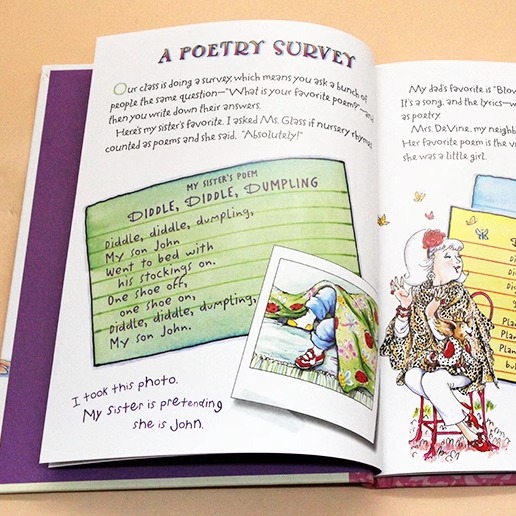 A POETRY SURVEY
Our class is doing a survey, which means you ask a bunch of
people the same question—"What is your favorite poem?"—and
then you write down their answers.
Here's my sister's favorite. I asked Ms. Glass if nursery rhymes
counted as poems and she said, "Absolutely!"
MY SISTER'S POEM
DIDDLE, DIDDLE, DUMPLING
Diddle, diddle, dumpling,
My son John
Went to bed with
his stockings on.
One shoe off,
one shoe on,
Diddle, diddle, dumpling,
My son John.
I took this photo.
My sister is pretending
she is John.
My dad's favorite is "Blow
It's a song, and the lyrics—w
as poetry.
Mrs. DeVine, my neighb
Her favorite poem is the v
she was a little girl.